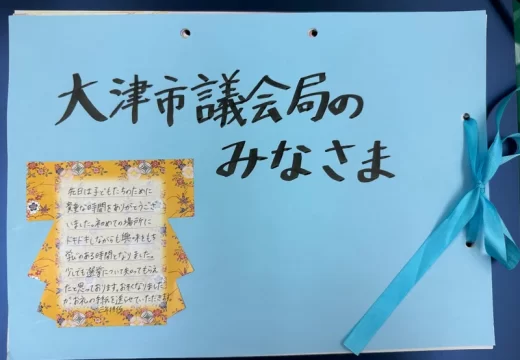 大津市議会局の
みなさま
先日は子どもたちのために
貴重な時間をありがとうござ
いました。初めての場所に
ドキドキしながらも興味をもち
学びのある時間となりました。
少しでも選挙について知ってもらえ
たと思っております。おそくなりました
が、お礼の手紙を送らせていただきます。